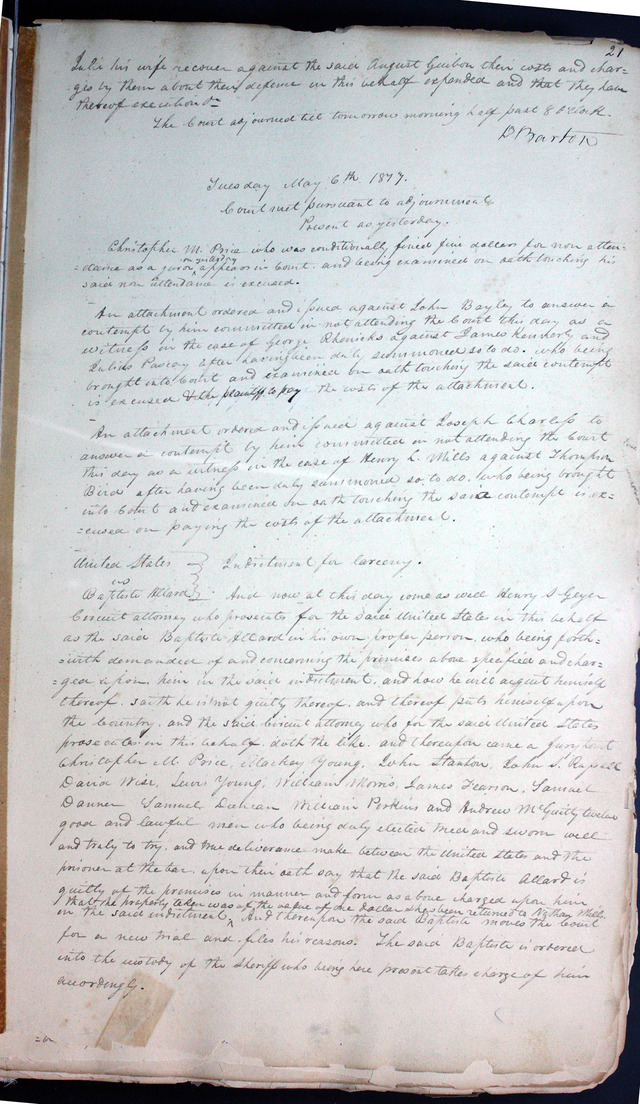 21
Julie his wife recover against the said August Guibon their costs and char-
ges by them about their defense in this behalf expended and that they have
thereof execution &c
The Court adjourned till tomorrow morning half past 8 O'Clock.
B Barton
Tuesday May 6th 1817.
Court met pursuant to adjournment
Present as yesterday.
Christopher M. Price who was conditionally fined five dollars for non atten-
on yesterday
=dance as a juror appears in Court. and being examined on oath touching his
said non attendance is excused.
An attachment ordered and issued against John Bayley to answer a
contempt by him committed in not attending the Court this day as a
witness in the case of George Rhenicks against James Kennerly and
Julius Pascay after having been duly summoned so to do. who being
brought into Court and examined on oath touching the said contempt
is excused & the plaintiff to pay the costs of the attachment.
An attachment ordered and issued against Joseph Charless to
answer a contempt by him committed in not attending the Court
this day as a witness in the case of Henry L. Mills against Thompson
Bird after having been duly summoned so to do. who being brought
into Court and examined on oath touching the said contempt is ex=
=cused on paying the costs of the attachment.
United States } Indictment for larceny.
vs
Baptiste Allard } And now at this day come as well Henry S Geyer
Circuit attorney who prosecutes for the said United States in this behalf
as the said Baptiste Allard in his own proper person, who being forth=
=with demanded of and concerning the premises above specified and char-
=ged upon him in the said indictment. and how he will acquit himself
thereof. saith he is not guilty thereof. and thereof puts himself upon
the Country. and the said Circuit attorney who for the said United States
prosecutes in this behalf. doth the like. and thereupon came a Jury
Christopher M. Price, Mackey Young, John Stanton, John S. Russell
David Wise, Lewis Young, William Morris, James Fearson, Samuel
Danner Samuel Duncan William Perkins and Andrew McGuilty twelve
good and lawful men who being duly elected tried and sworn well
and truly to try. and true deliverance make between the United States and the
prisoner at the bar. upon their oath say that the said Baptiste Allard is
guilty of the premises in manner and form as above charged upon him
that the property taken was of the value of one dollar & has been returned to
in the said indictment. And thereupon the said Baptiste moves the Court
for a new trial and files his reasons. The said Baptiste is ordered
into the custody of the Sheriff who being here present takes charge of him
accordingly.